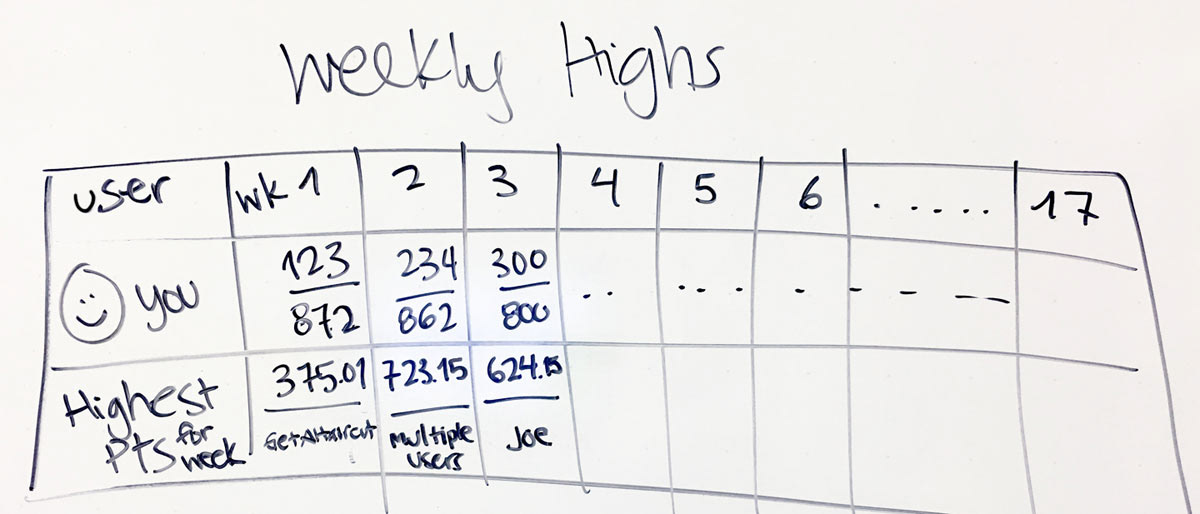 Weekly Highs
user wk 1 2 3 4 5 6 ..... 17
you 123 234 300
872 862 800
Highest PTS for week 375.01 723.15 624.15
GetAHaircut Multiple users Joe